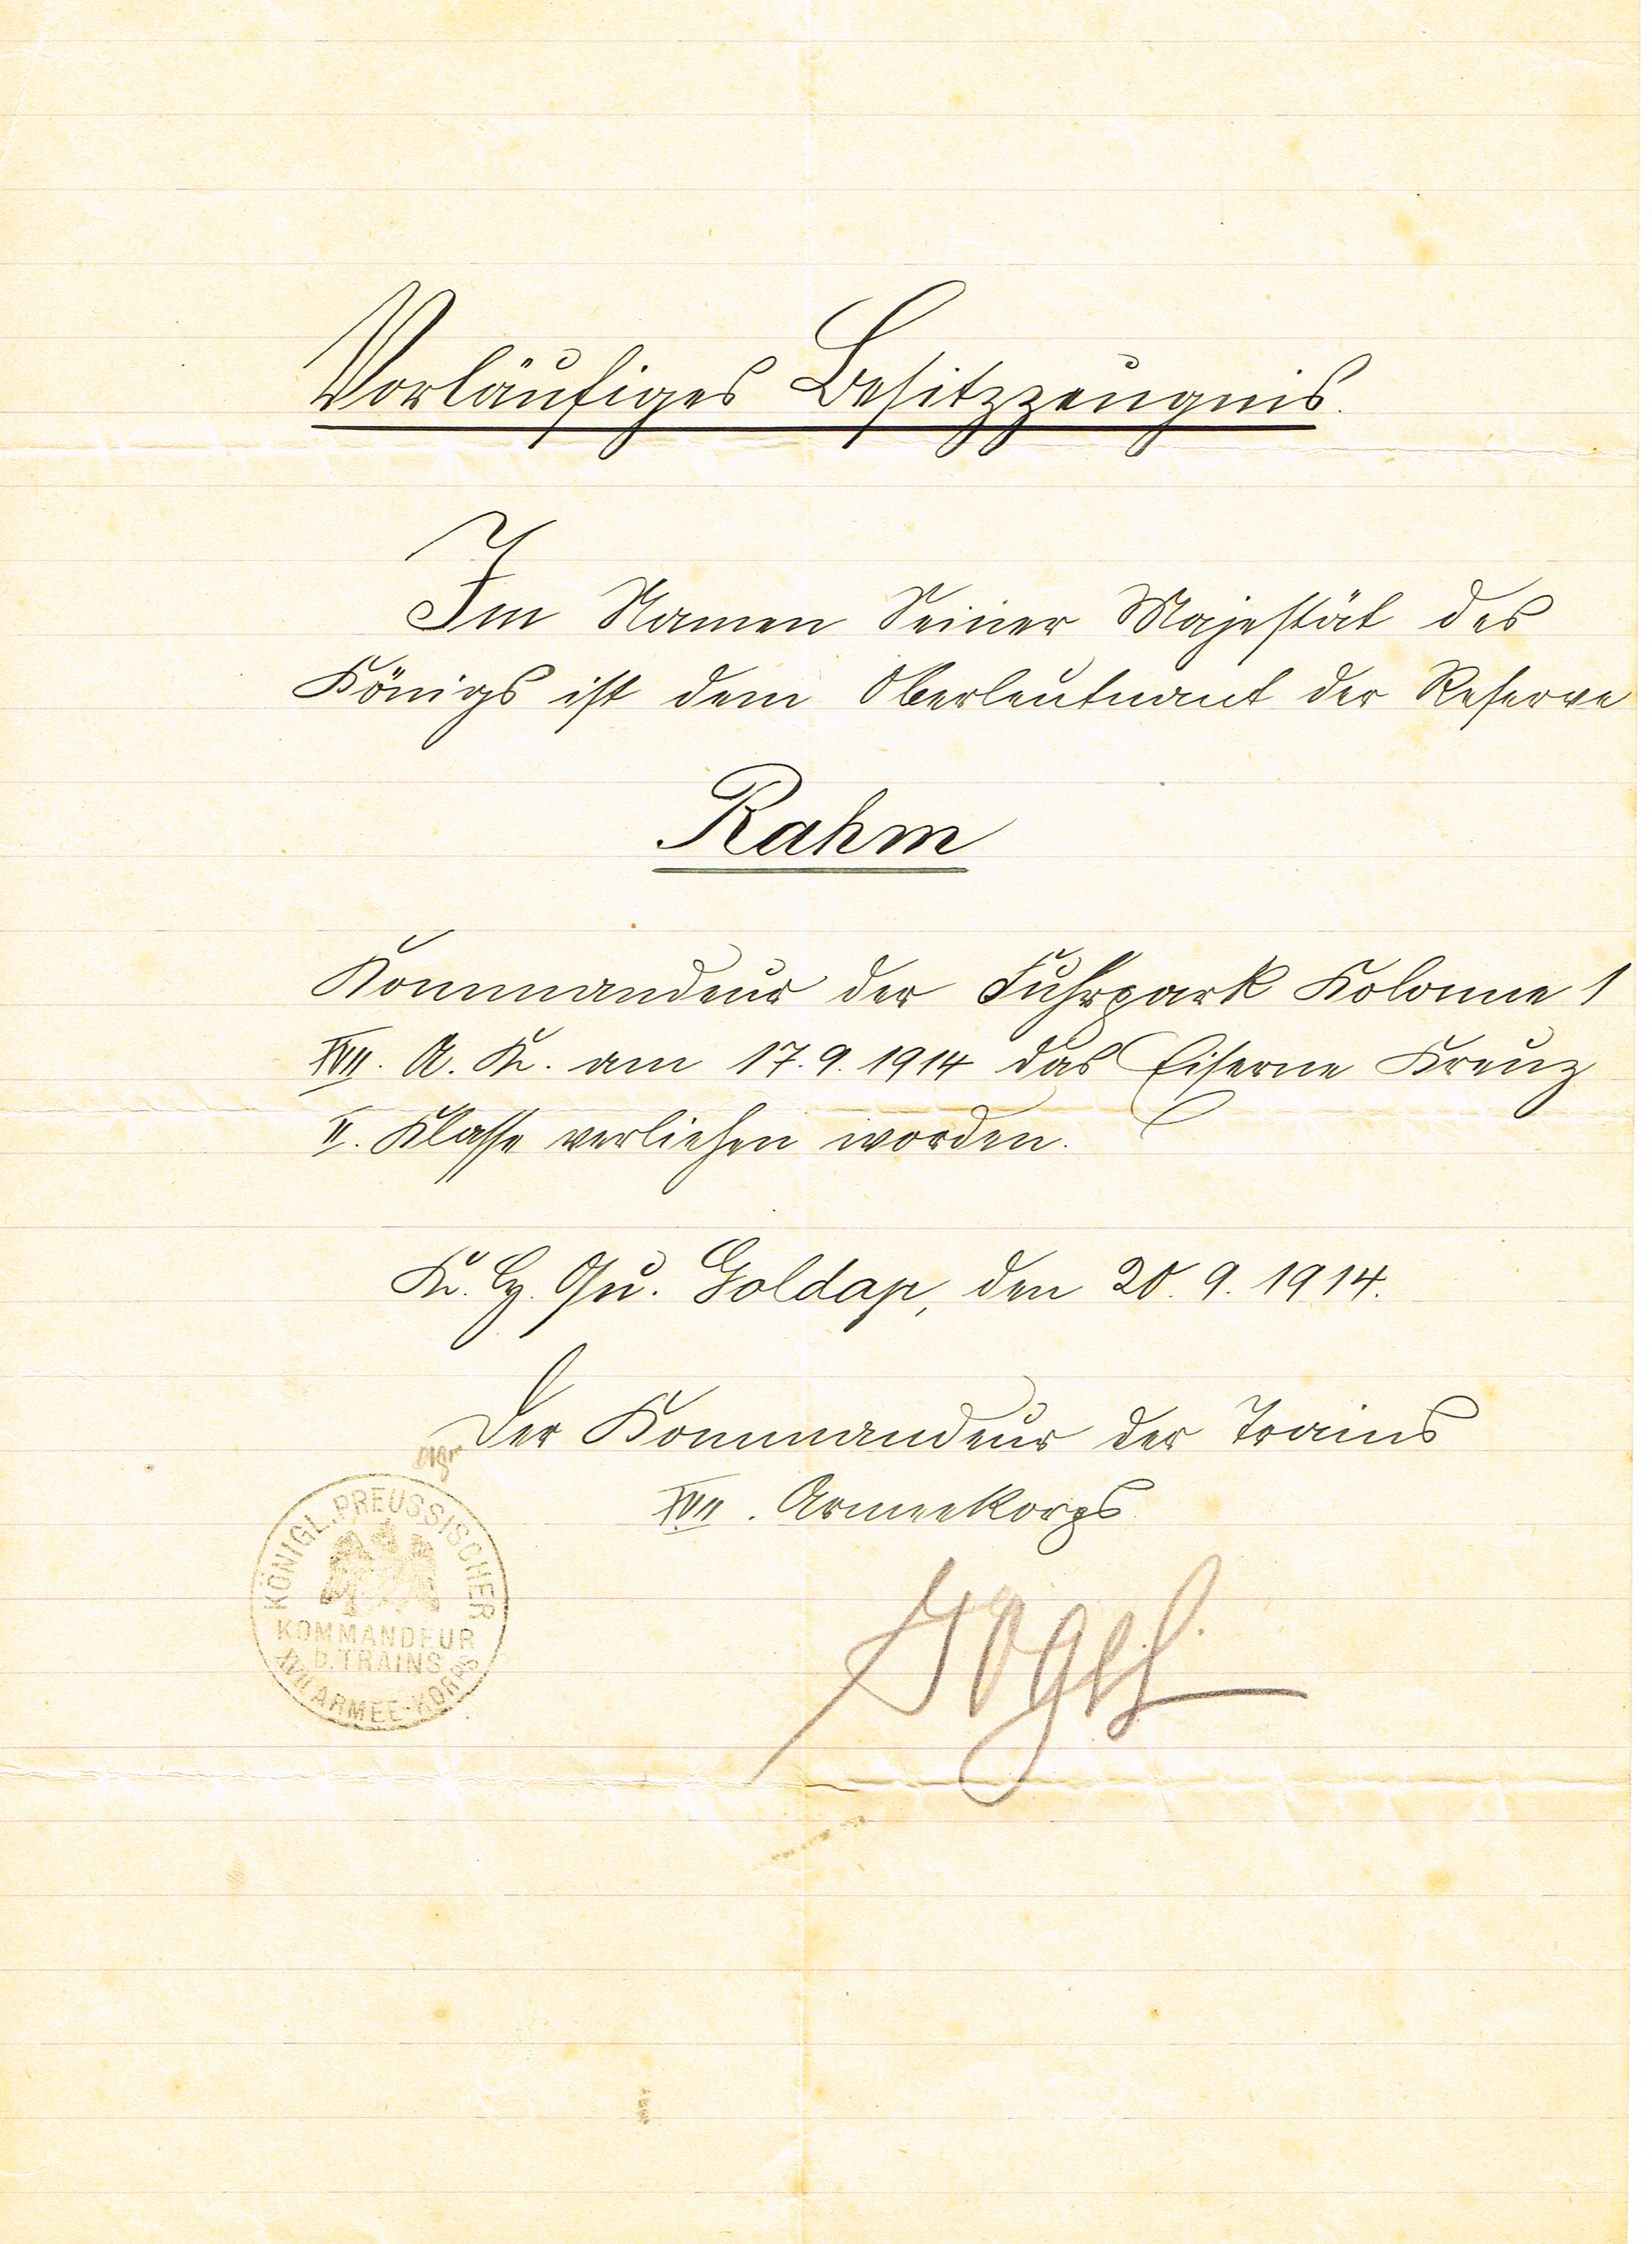 Vorläufiges Besitzzeugnis.
Im Namen Seiner Majestät des
Königs ist dem Oberleutnant der Reserve
Rahm
Kommandeur der Fuhrpark Kolonne 1
XVII. A. K. am 17.9.1914 das Eiserne Kreuz
II. Klasse verliehen worden.
K. H. Qu. Goldap, den 20.9.1914.
Der Kommandeur der Trains
XVII. Armeekorps.
KÖNIGL. PREUSSISCHER
KOMMANDEUR
D. TRAINS
XVII ARMEE-KORPS